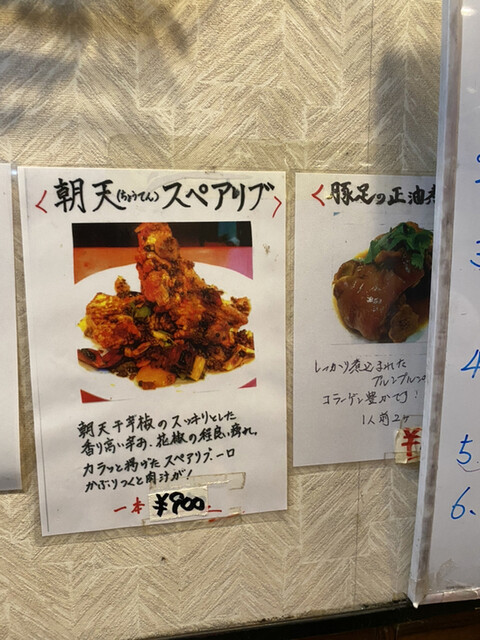 <朝天(ちょうてん)スペアリブ>
朝天干年椒のスッキリとした
香り高い辛さ、花椒の程良い痺れ。
カラッと揚げたスペアリブ、一口
かぶりつくと肉汁が!
一本 ¥900.-
<豚足の正油煮
しっかり煮込まれた
プルンプルン
コラーゲン豊かです!
1人前2ヶ
¥
3
4
5
6.